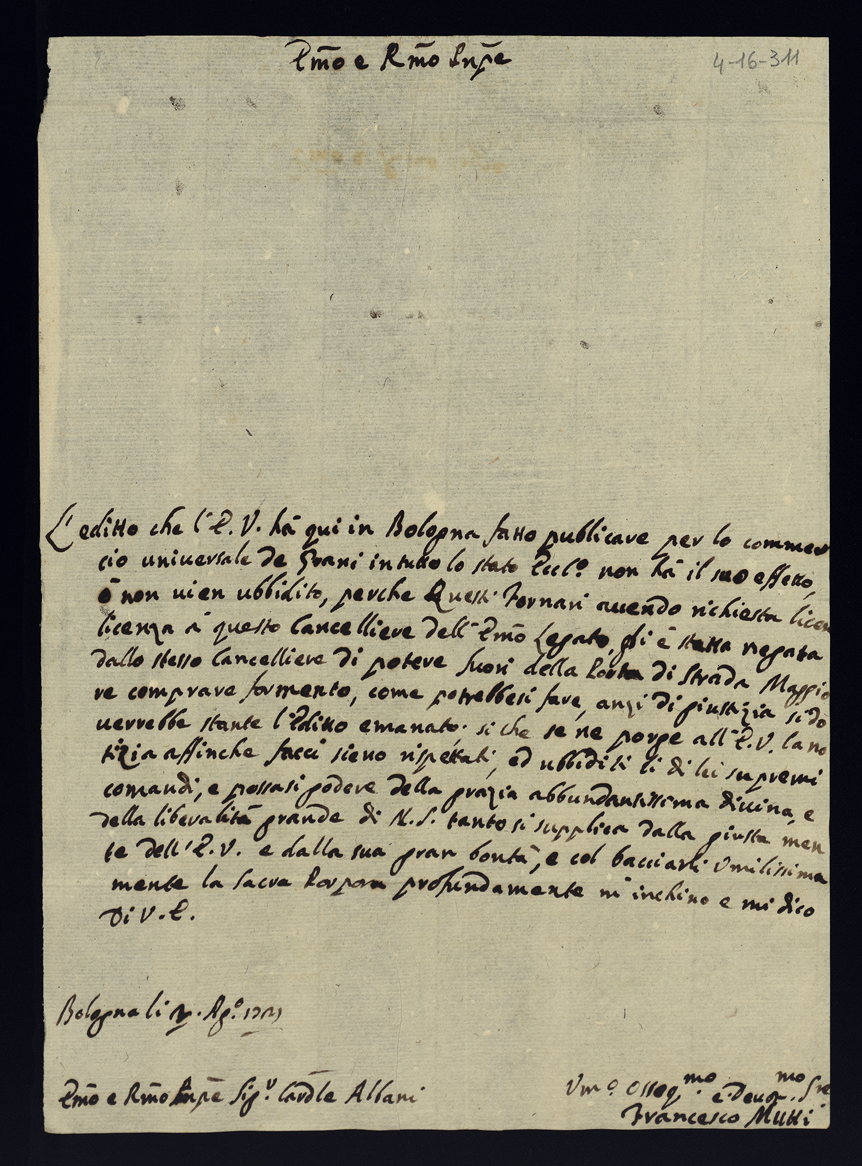 Emo e Rmo Pnpe
4-16-311
L'editto che l'E. V. hà qui in Bologna fatto publicare per lo commer
cio universale de Grani in tutto lo stato Eccl.º non hà il suo effetto,
ò non uien ubbidito, perche Questi Fornari auendo richiesta licen
licenza à questo Cancelliere dell'Emo Legato, gli è stata negata
dallo stesso Cancelliere di potere fuori della Porta di Strada Maggio
re comprare formento, come potrebbesi fare, anzi di giustizia si do
uerrebbe stante l'Editto emanato. si che se ne porge all'E. V. la no
tizia affinche facci sieno rispettati, ed ubbiditi li di lei supremi
comandi, e possasi godere della grazia abbundantissima diuina, e
della liberalità grande di N. S. tanto si supplica dalla giusta men
te dell'E. V. e dalla sua gran bontà, e col bacciarli Umilissima
mente la Sacra Porpora profundamente m'inchino e mi dico
Di V. E.
Bologna li Ag.º
Emo e Rmo Pnpe Sig.r Cardle Albani
Vm.º Osseq.mo e Deuo.mo Sre
Francesco Mutti